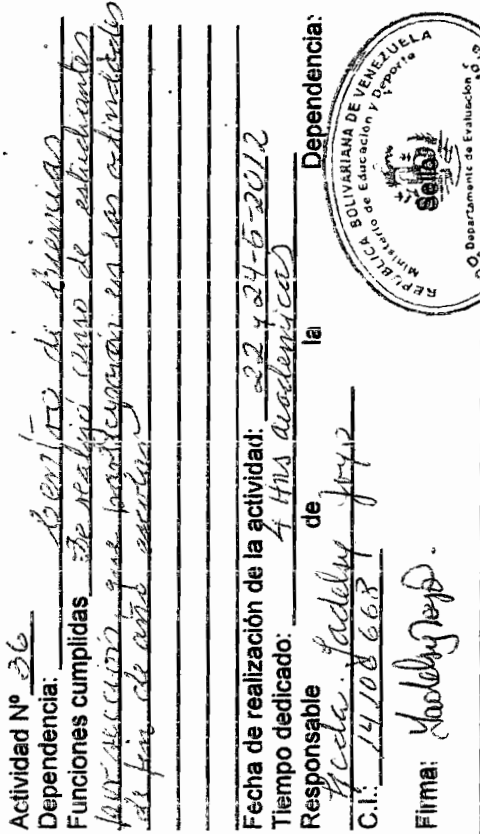 Actividad Nº 36
Dependencia: Centro de Ciencias
Funciones cumplidas Se realizó censo de estudiantes
por sección que participarán en las actividades
de fin de año escolar
Fecha de realización de la actividad: 22 y 24-6-2012
Tiempo dedicado: 4 Hrs academicas
Responsable de la Dependencia:
Joyo
C.I.: 14.108.668
Firma:
REPUBLICA BOLIVARIANA DE VENEZUELA
Ministerio de Educación y Deporte
Sello
Departamento de Evaluación